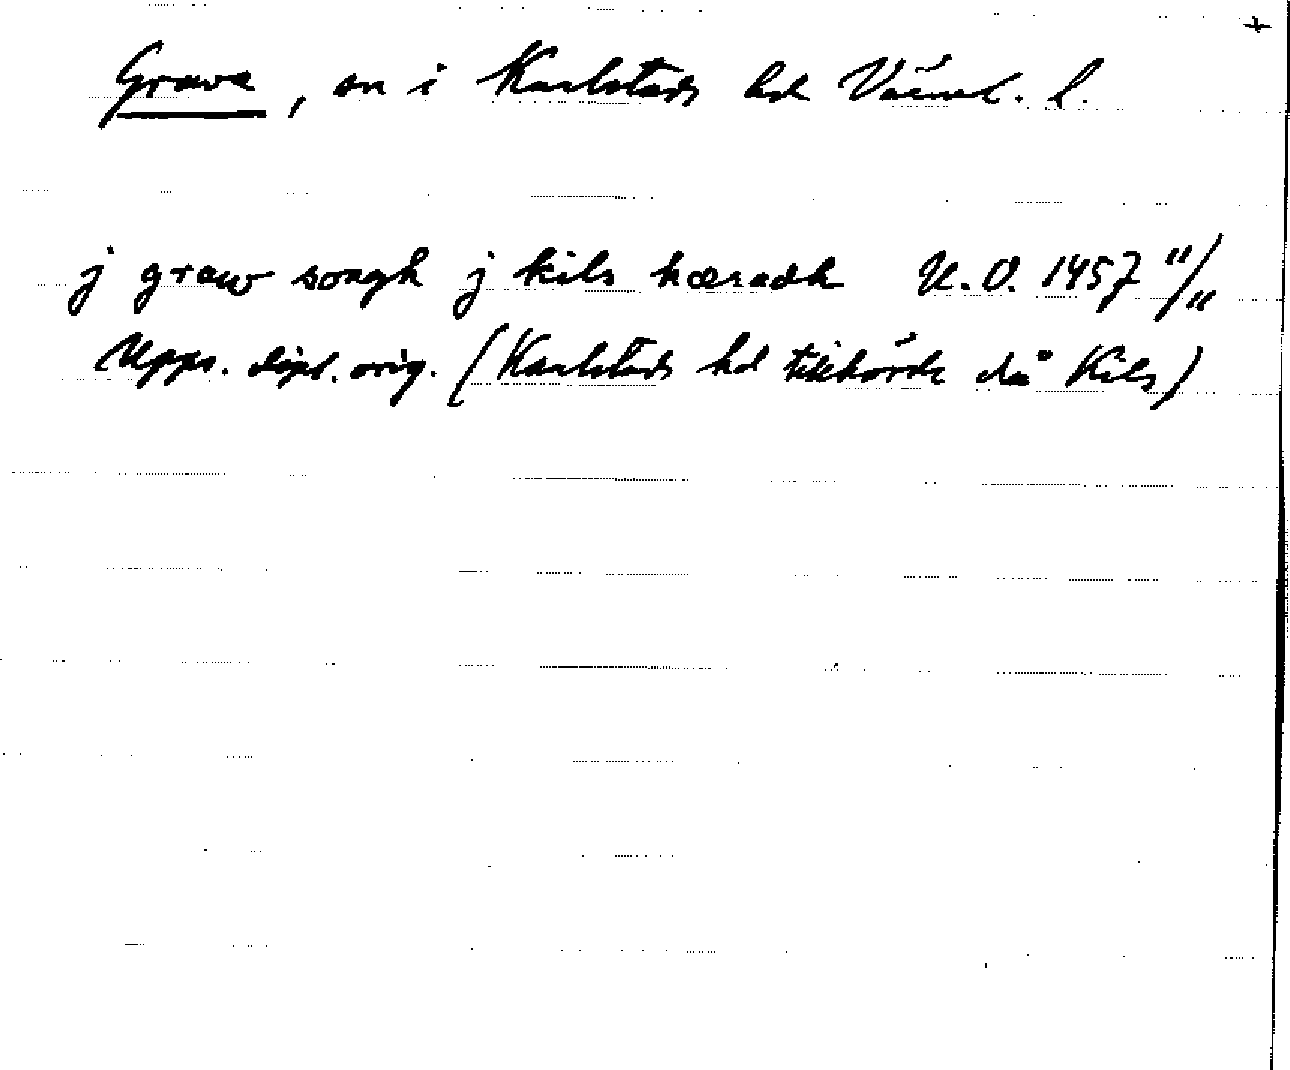 Grava, sn i Karlstads hd Värml. l.
j graw songh j kils hæradh U.O. 1457 11/11
Upps. dipl. orig. (Karlstads hd tillhörde då Kils)